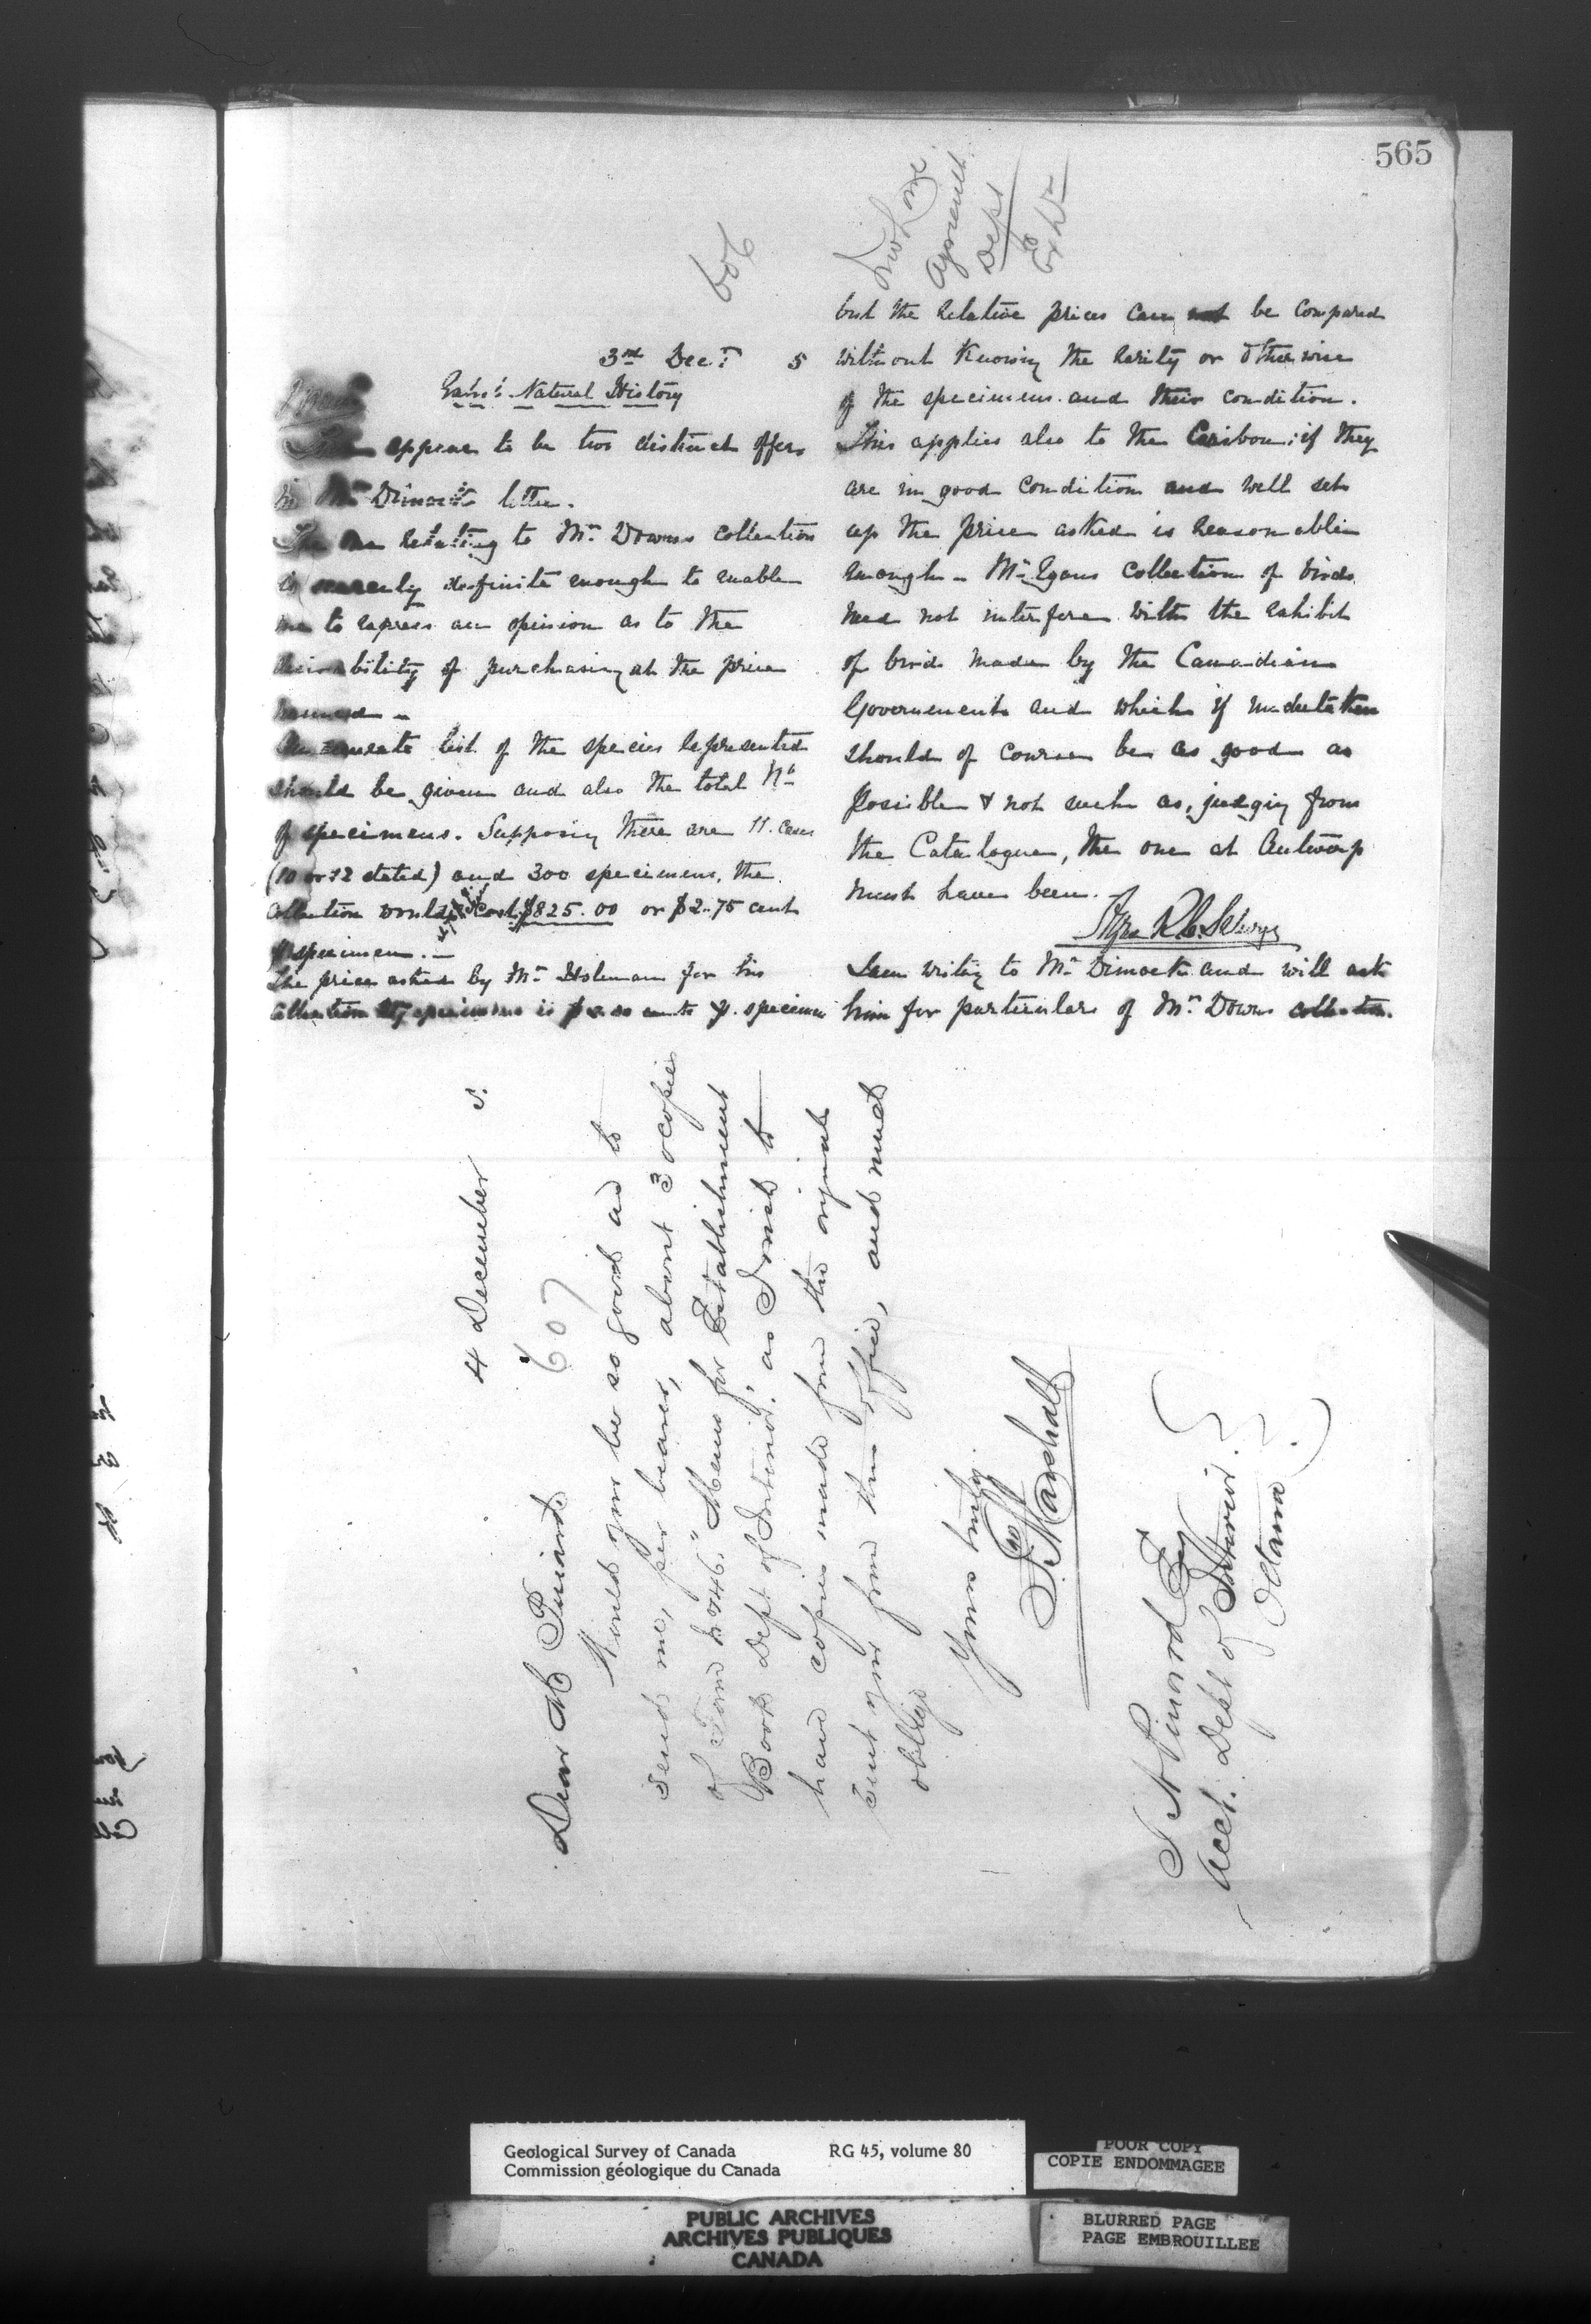 565
606
Agricult.
Dept
3rd Decr. 5
Natural History
appear to be two distinct offers
in Mr Dimock's letter.
The one relating to Mr. Downs collection
is scarcely definite enough to enable
me to express an opinion as to the
desirability of purchasing at the price
named –
An accurate list of the species represented
should be given and also the total No
of specimens. Supposing there are 11 cases
(10 or 12 stated) and 300 specimens, the
collection would cost $825.00 or $2.75 cents
specimen. –
The price asked by Mr. Holman for his
collection specimens is cents p. specimen
but the relative prices can not be compared
without knowing the rarity or otherwise
of the specimens and their condition.
This applies also to the Caribou; if they
are in good condition and well set
up the price asked is reasonable
enough – Mr Egans collection of birds
need not interfere with the exhibit
of birds made by the Canadian
Government and which if undertaken
should of course be as good as
possible & not such as, judging from
the Catalogue, the one at Antwerp
must have been.
A R C Selwyn
I am writing to Mr Dimock and will ask
him for particulars of Mr. Downs collection.
4 December 5.
607
Dear Mr Pinard
Would you be so good as to
send me, per bearer, about 30 copies
of Form No 746. "Memo for Establishment
Book Dept of Interior", as I wish to
have copies made from the originals
sent you from this office, and must
oblige
Yours truly
J. Marshall
J A Pinard Esq
Acct. Dept of Interior.
Ottawa.
Geological Survey of Canada RG 45, volume 80
Commission géologique du Canada
POOR COPY
COPIE ENDOMMAGEE
PUBLIC ARCHIVES
ARCHIVES PUBLIQUES
CANADA
BLURRED PAGE
PAGE EMBROUILLEE